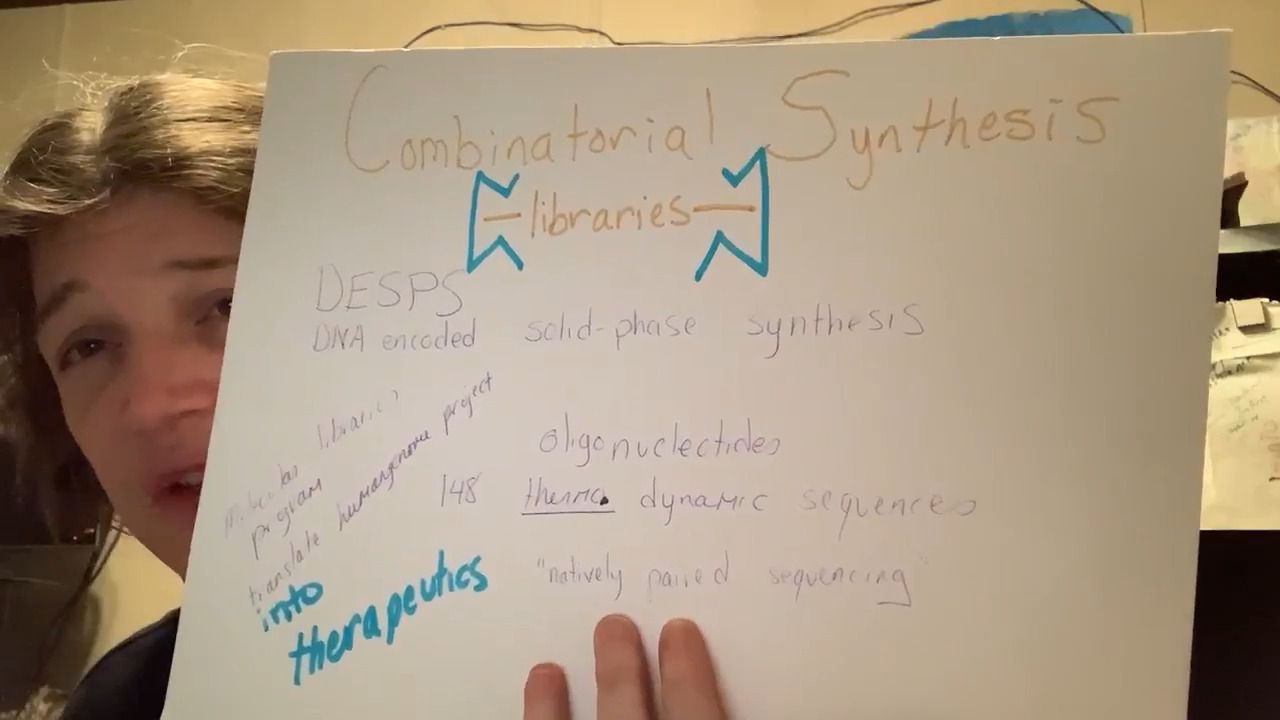 Combinatorial Synthesis
- libraries -
DESPS
DNA encoded solid-phase synthesis
molecular libraries
program
translate humangenome project
into
therapeutics
oligonucleotides
148 thermo dynamic sequences
"natively paired sequencing"